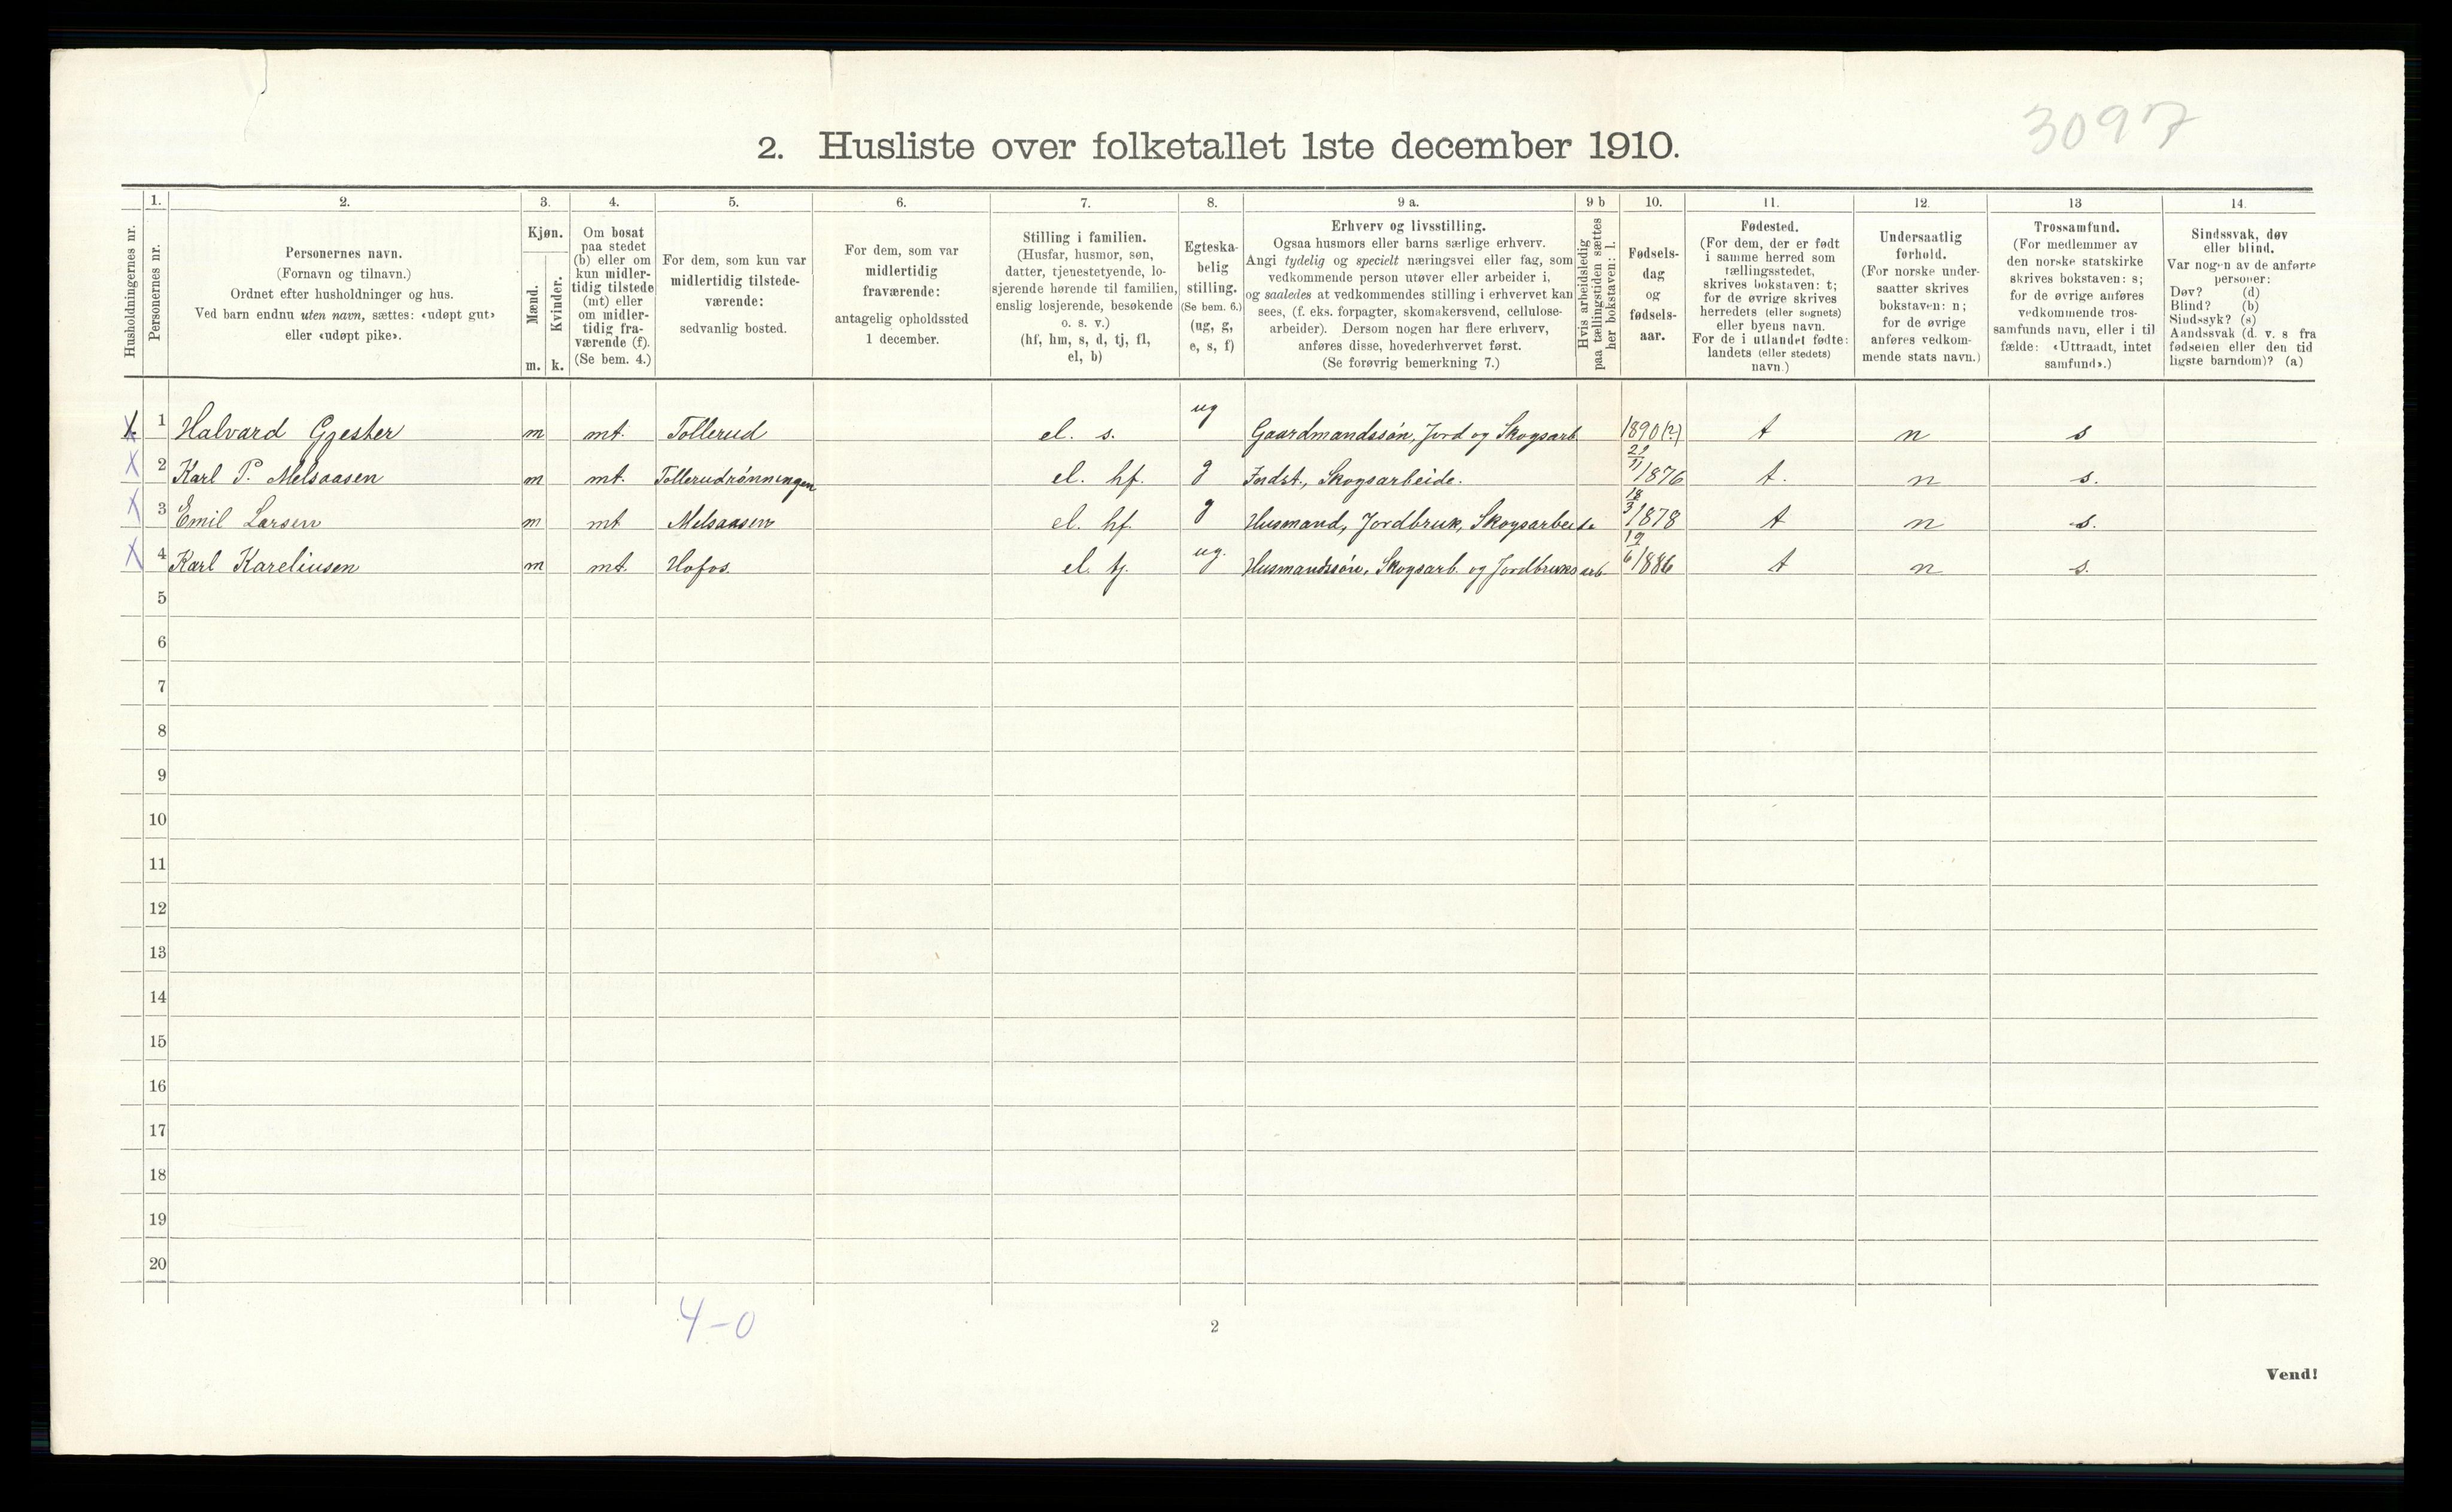 3097
2. Husliste over folketallet 1ste december 1910.
1. 2. 3. 4. 5. 6. 7. 8. 9 a. 9 b 10. 11. 12. 13 14.
Husholdningernes nr.
Personernes nr.
Personernes navn.
(Fornavn og tilnavn.)
Ordnet efter husholdninger og hus.
Ved barn endnu uten navn, sættes: «udøpt gut»
eller «udøpt pike».
Kjøn.
Mænd.
Kvinder.
m. k.
Om bosat
paa stedet
(b) eller om
kun midler-
tidig tilstede
(mt) eller
om midler-
tidig fra-
værende (f).
(Se bem. 4.)
For dem, som kun var
midlertidig tilstede-
værende:
sedvanlig bosted.
For dem, som var
midlertidig
fraværende:
antagelig opholdssted
1 december.
Stilling i familien.
(Husfar, husmor, søn,
datter, tjenestetyende, lo-
sjerende hørende til familien,
enslig losjerende, besøkende
o. s. v.)
(hf, hm, s, d, tj, fl,
el, b)
Egteska-
belig
stilling.
(Se bem. 6.)
(ug, g,
e, s, f)
Erhverv og livsstilling.
Ogsaa husmors eller barns særlige erhverv.
Angi tydelig og specielt næringsvei eller fag, som
vedkommende person utøver eller arbeider i,
og saaledes at vedkommendes stilling i erhvervet kan
sees, (f. eks. forpagter, skomakersvend, cellulose-
arbeider). Dersom nogen har flere erhverv,
anføres disse, hovederhvervet først.
(Se forøvrig bemerkning 7.)
Hvis arbeidsledig
paa tællingstiden sættes
her bokstaven: l.
Fødsels-
dag
og
fødsels-
aar.
Fødested.
(For dem, der er født
i samme herred som
tællingsstedet,
skrives bokstaven: t;
for de øvrige skrives
herredets (eller sognets)
eller byens navn.
For de i utlandet fødte:
landets (eller stedets)
navn.)
Undersaatlig
forhold.
(For norske under-
saatter skrives
bokstaven: n;
for de øvrige
anføres vedkom-
mende stats navn.)
Trossamfund.
(For medlemmer av
den norske statskirke
skrives bokstaven: s;
for de øvrige anføres
vedkommende tros-
samfunds navn, eller i til
fælde: «Uttraadt, intet
samfund».)
Sindssvak, døv
eller blind.
Var nogen av de anførte
personer:
Døv? (d)
Blind? (b)
Sindssyk? (s)
Aandssvak (d. v. s fra
fødselen eller den tid
ligste barndom)? (a)
X 1 Halvard Gjester m mt. Tollerud el. s. ug Gaardmandssøn, Jord og Skogsarb. 1890 (?) t n s
X 2 Karl P. Melsaasen m mt. Tollerudrønningen el. hf. g Indst., Skogsarbeide. 21/11 1876 t. n s.
X 3 Emil Larsen m mt Melsaasen el. hf. g Husmand, Jordbruk, Skogsarbeide 18/3 1878 t n s.
X 4 Karl Kareliusen m mt. Hofos. el. tj. ug. Husmandssøn, Skogsarb. og Jordbruksarb. 19/6 1886 t n s.
5
6
7
8
9
10
11
12
13
14
15
16
17
18
19
20
4-0
2
Vend!